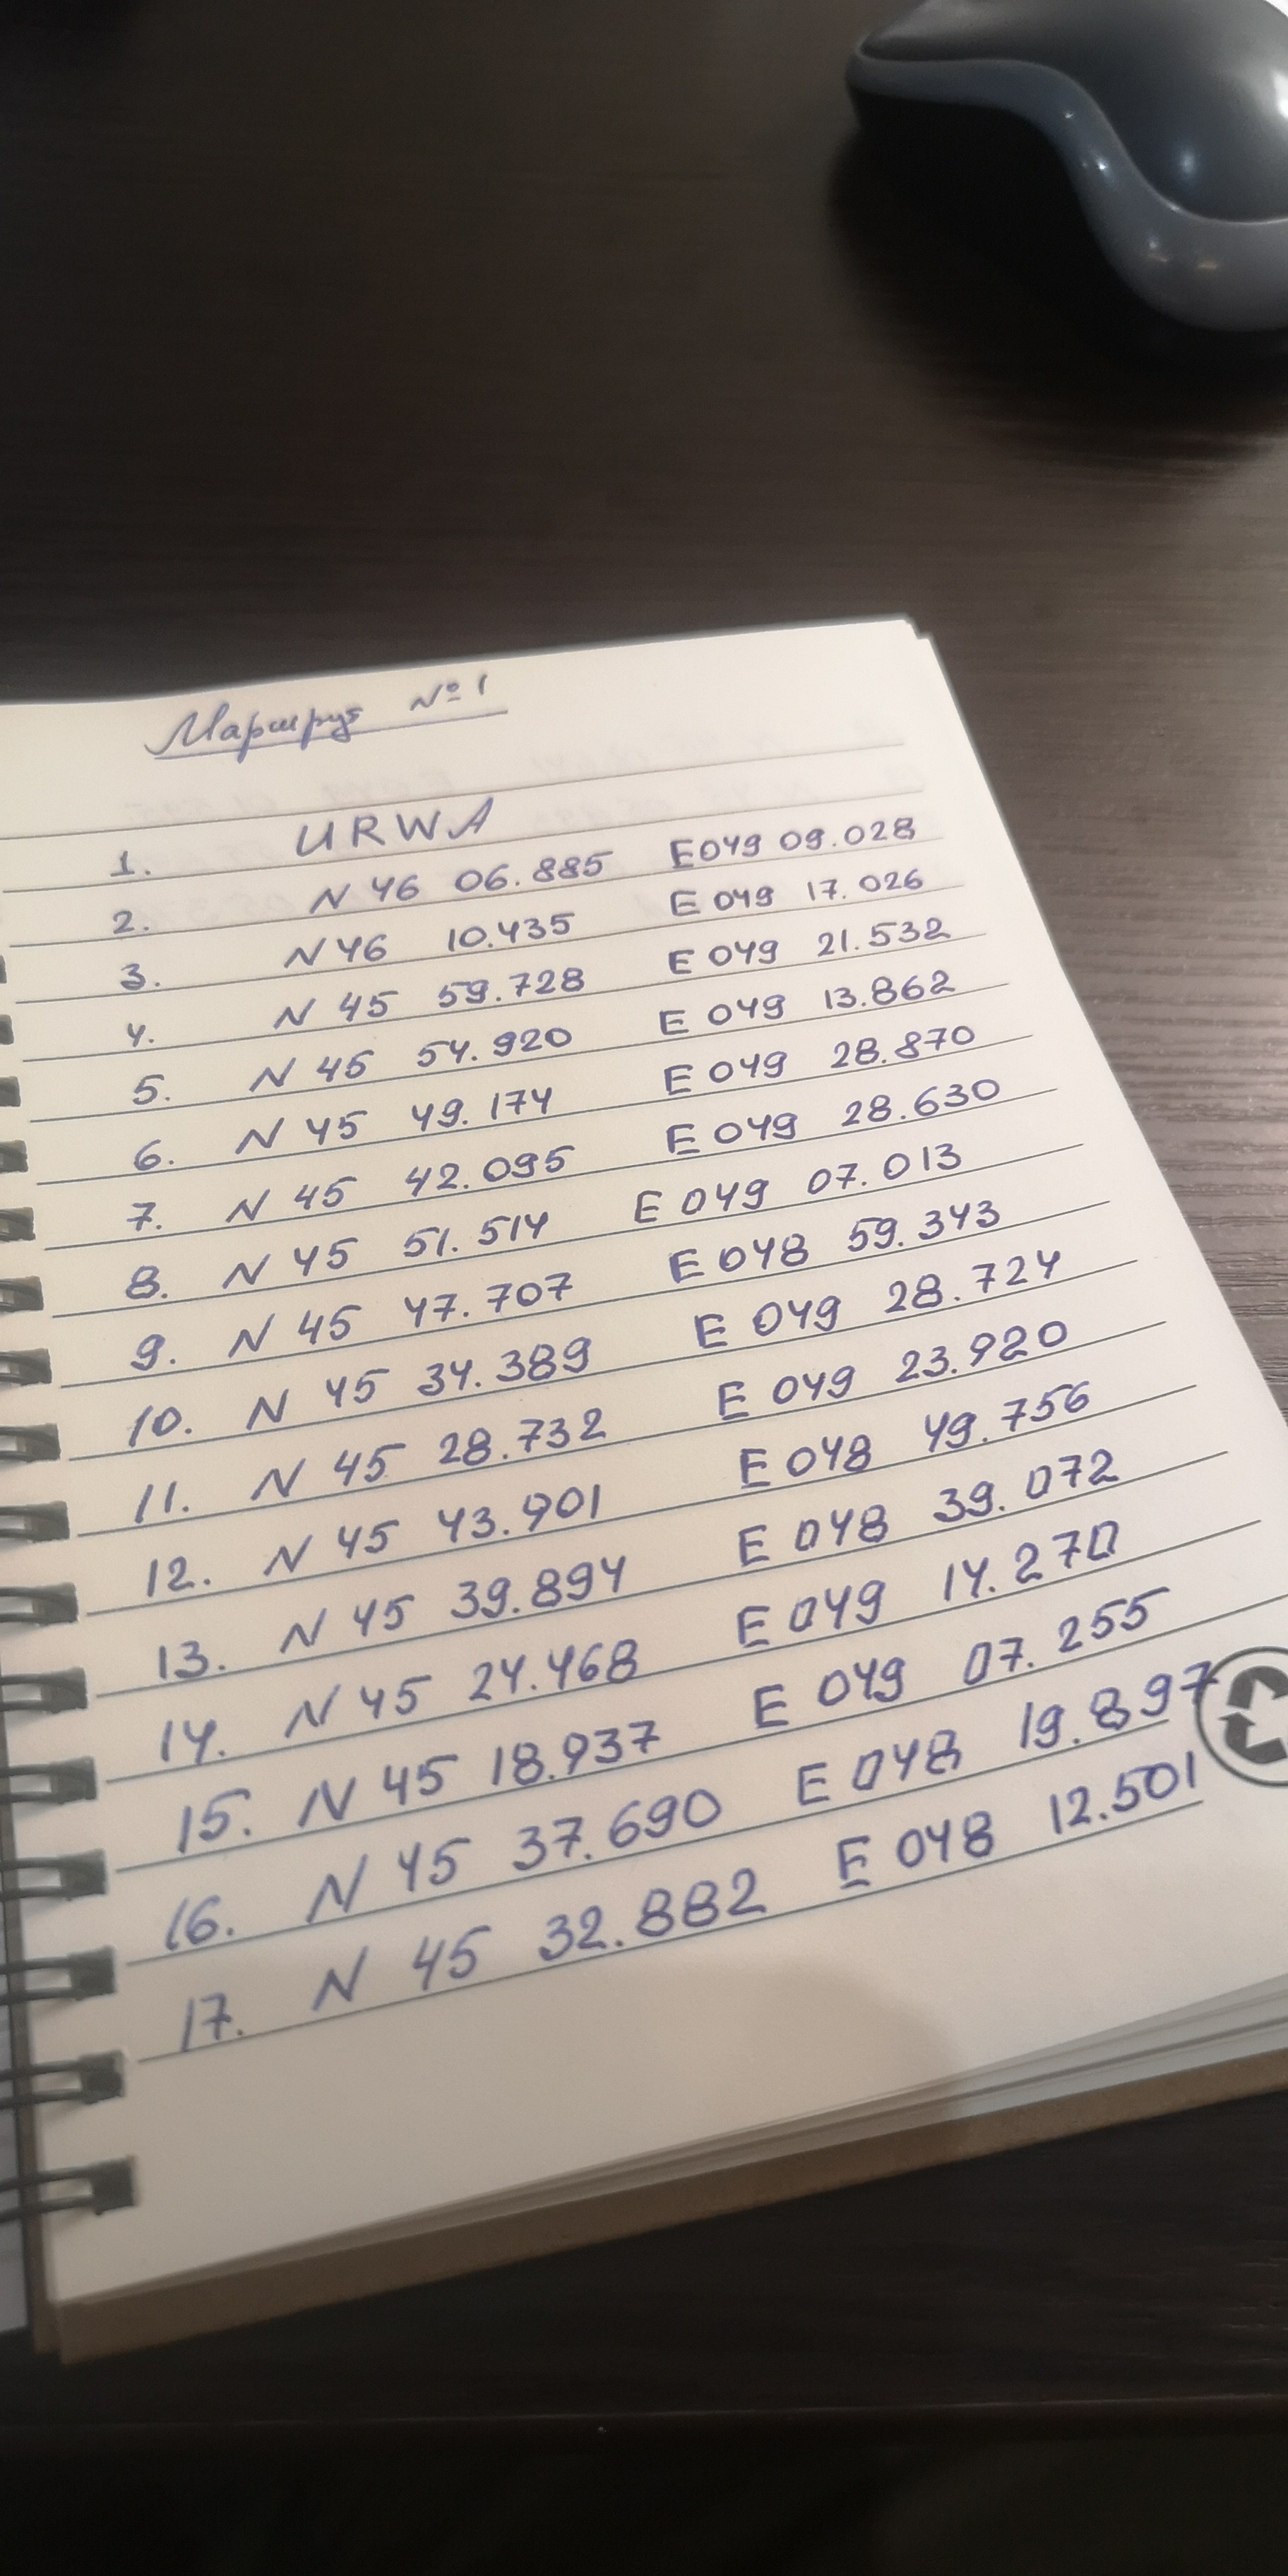 Маршрут №1
1. URWA
2. N 46 06.885 E049 09.028
3. N46 10.435 E 049 17.026
4. N 45 59.728 E 049 21.532
5. N 45 54.920 E 049 13.862
6. N 45 49.174 E 049 28.870
7. N 45 42.095 E 049 28.630
8. N 45 51.514 E 049 07.013
9. N 45 47.707 E 048 59.343
10. N 45 34.389 E 049 28.724
11. N 45 28.732 E 049 23.920
12. N 45 43.901 E 048 49.756
13. N 45 39.894 E 048 39.072
14. N 45 24.468 E 049 14.270
15. N 45 18.937 E 049 07.255
16. N 45 37.690 E 048 19.897
17. N 45 32.882 E 048 12.501